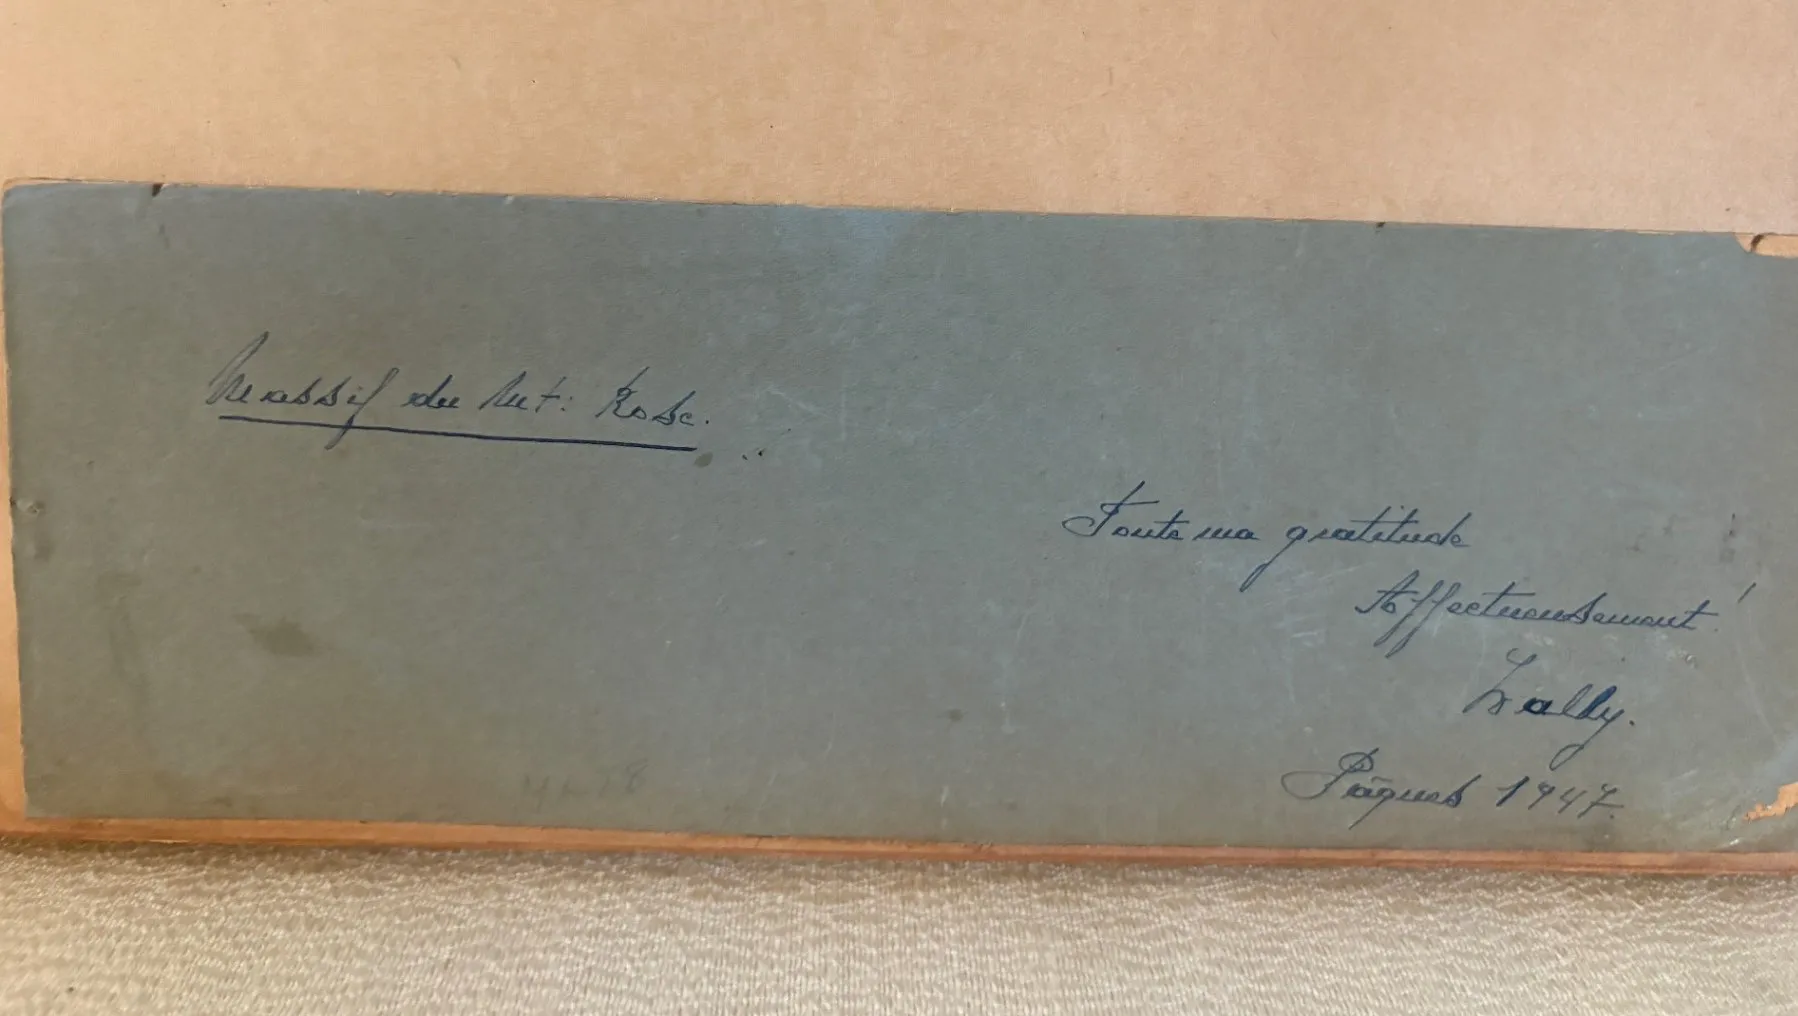 Massif du Mt: Rose.
Toute ma gratitude
Affectueusement!
Pâques 1947.